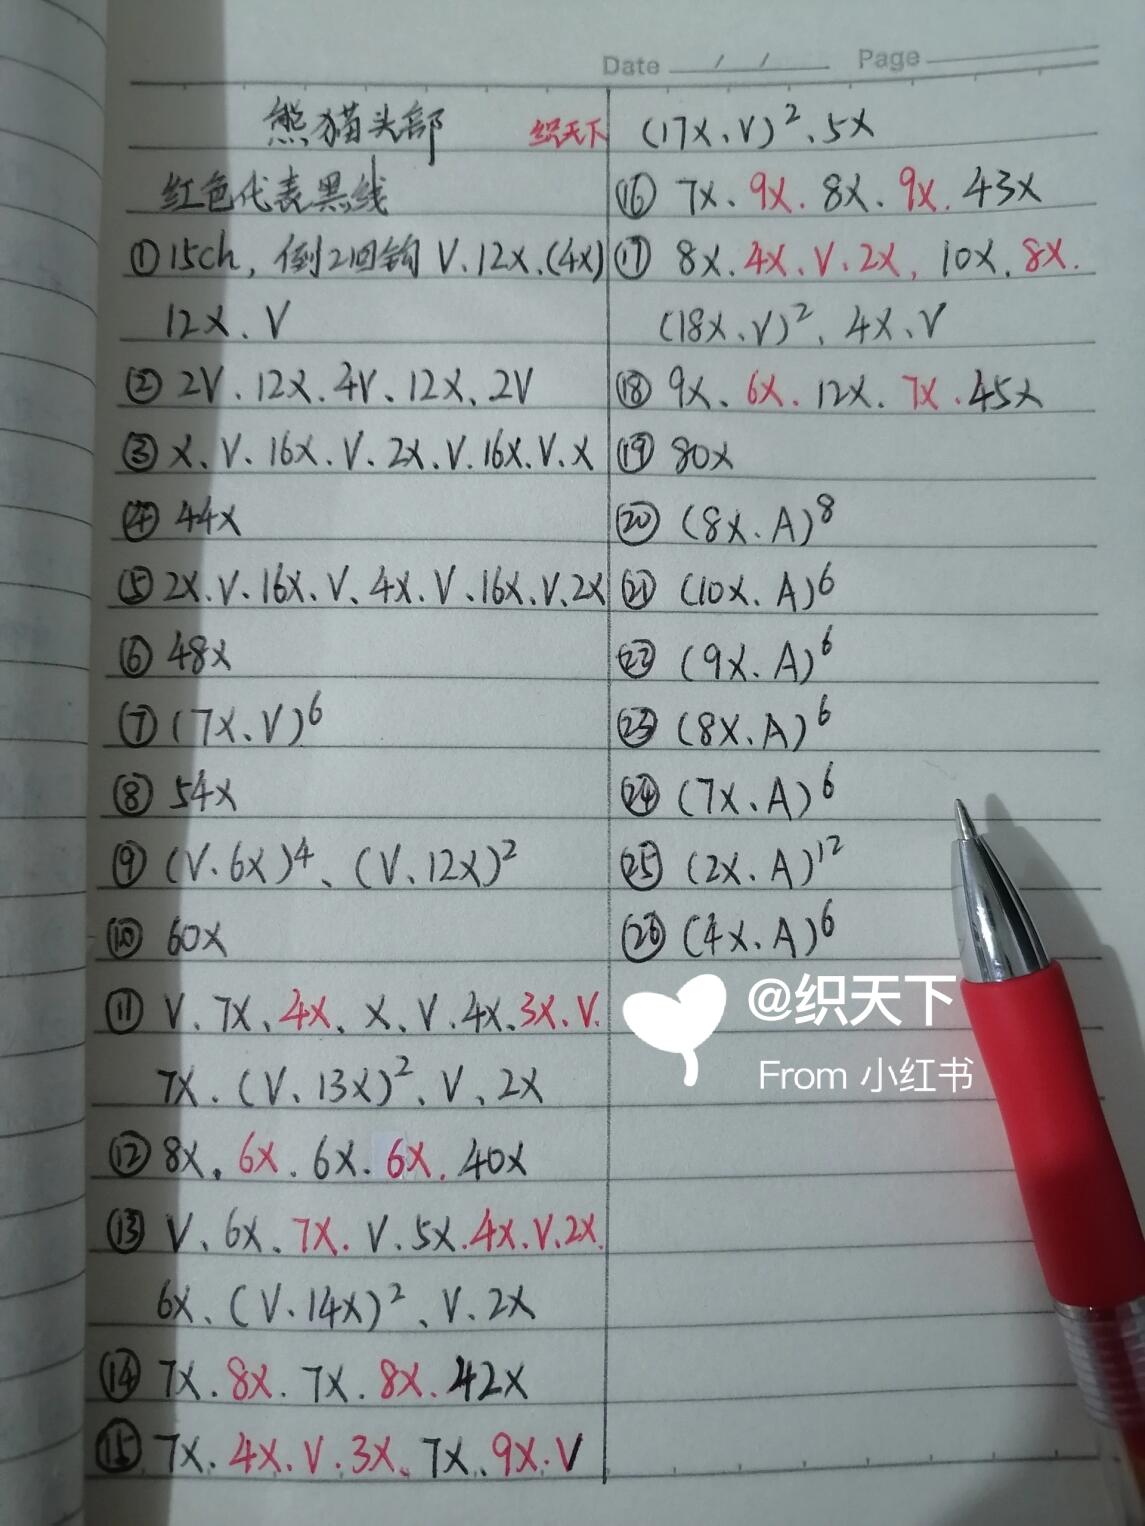 Date / / Page
熊猫头部 织天下
红色代表黑线
①15ch, 倒2回钩 V、12X、(4X)
12X、V
②2V、12X、4V、12X、2V
③X、V、16X、V、2X、V、16X、V、X
④44X
⑤2X、V、16X、V、4X、V、16X、V、2X
⑥48X
⑦(7X、V)⁶
⑧54X
⑨(V、6X)⁴、(V、12X)²
⑩60X
⑪V、7X、4X、X、V、4X、3X、V、
7X、(V、13X)²、V、2X
⑫8X、6X、6X、6X、40X
⑬V、6X、7X、V、5X、4X、V、2X、
6X、(V、14X)²、V、2X
⑭7X、8X、7X、8X、42X
⑮7X、4X、V、3X、7X、9X、V
(17X、V)²、5X
⑯7X、9X、8X、9X、43X
⑰8X、4X、V、2X、10X、8X、
(18X、V)²、4X、V
⑱9X、6X、12X、7X、45X
⑲80X
⑳(8X、A)⁸
㉑(10X、A)⁶
㉒(9X、A)⁶
㉓(8X、A)⁶
㉔(7X、A)⁶
㉕(2X、A)¹²
㉖(4X、A)⁶
@织天下
From 小红书